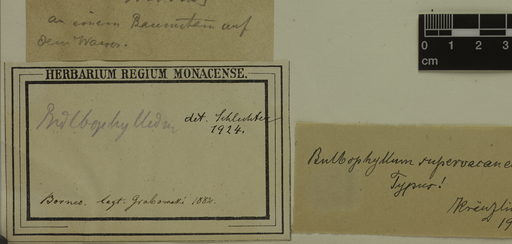 an einem Baumstam auf
dem Wasser.
HERBARIUM REGIUM MONACENSE.
Bulbophyllum det. Schlechter
1924.
Borneo. legt. Grabowski 1882.
Bulbophyllum supervacaneum
Typus!
Kränzlin
19
0 1 2 3
cm